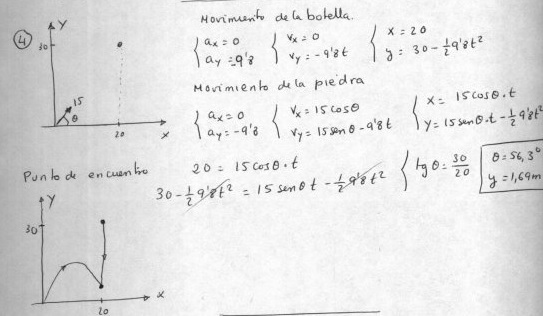 ④
Y
30
15
θ
20
X
Movimiento de la botella.
{ ax = 0
ay = -9'8
{ vx = 0
vy = -9'8t
{ x = 20
y = 30 - 1/2 9'8t²
Movimiento de la piedra
{ ax = 0
ay = -9'8
{ vx = 15 cosθ
vy = 15 senθ - 9'8t
{ x = 15 cosθ·t
y = 15 senθ·t - 1/2 9'8t²
Punto de encuentro
20 = 15 cosθ·t
30 - 1/2 9'8t² = 15 senθ t - 1/2 9'8t²
{ tg θ = 30/20
θ = 56,3º
y = 1,69m
Y
30
20
X